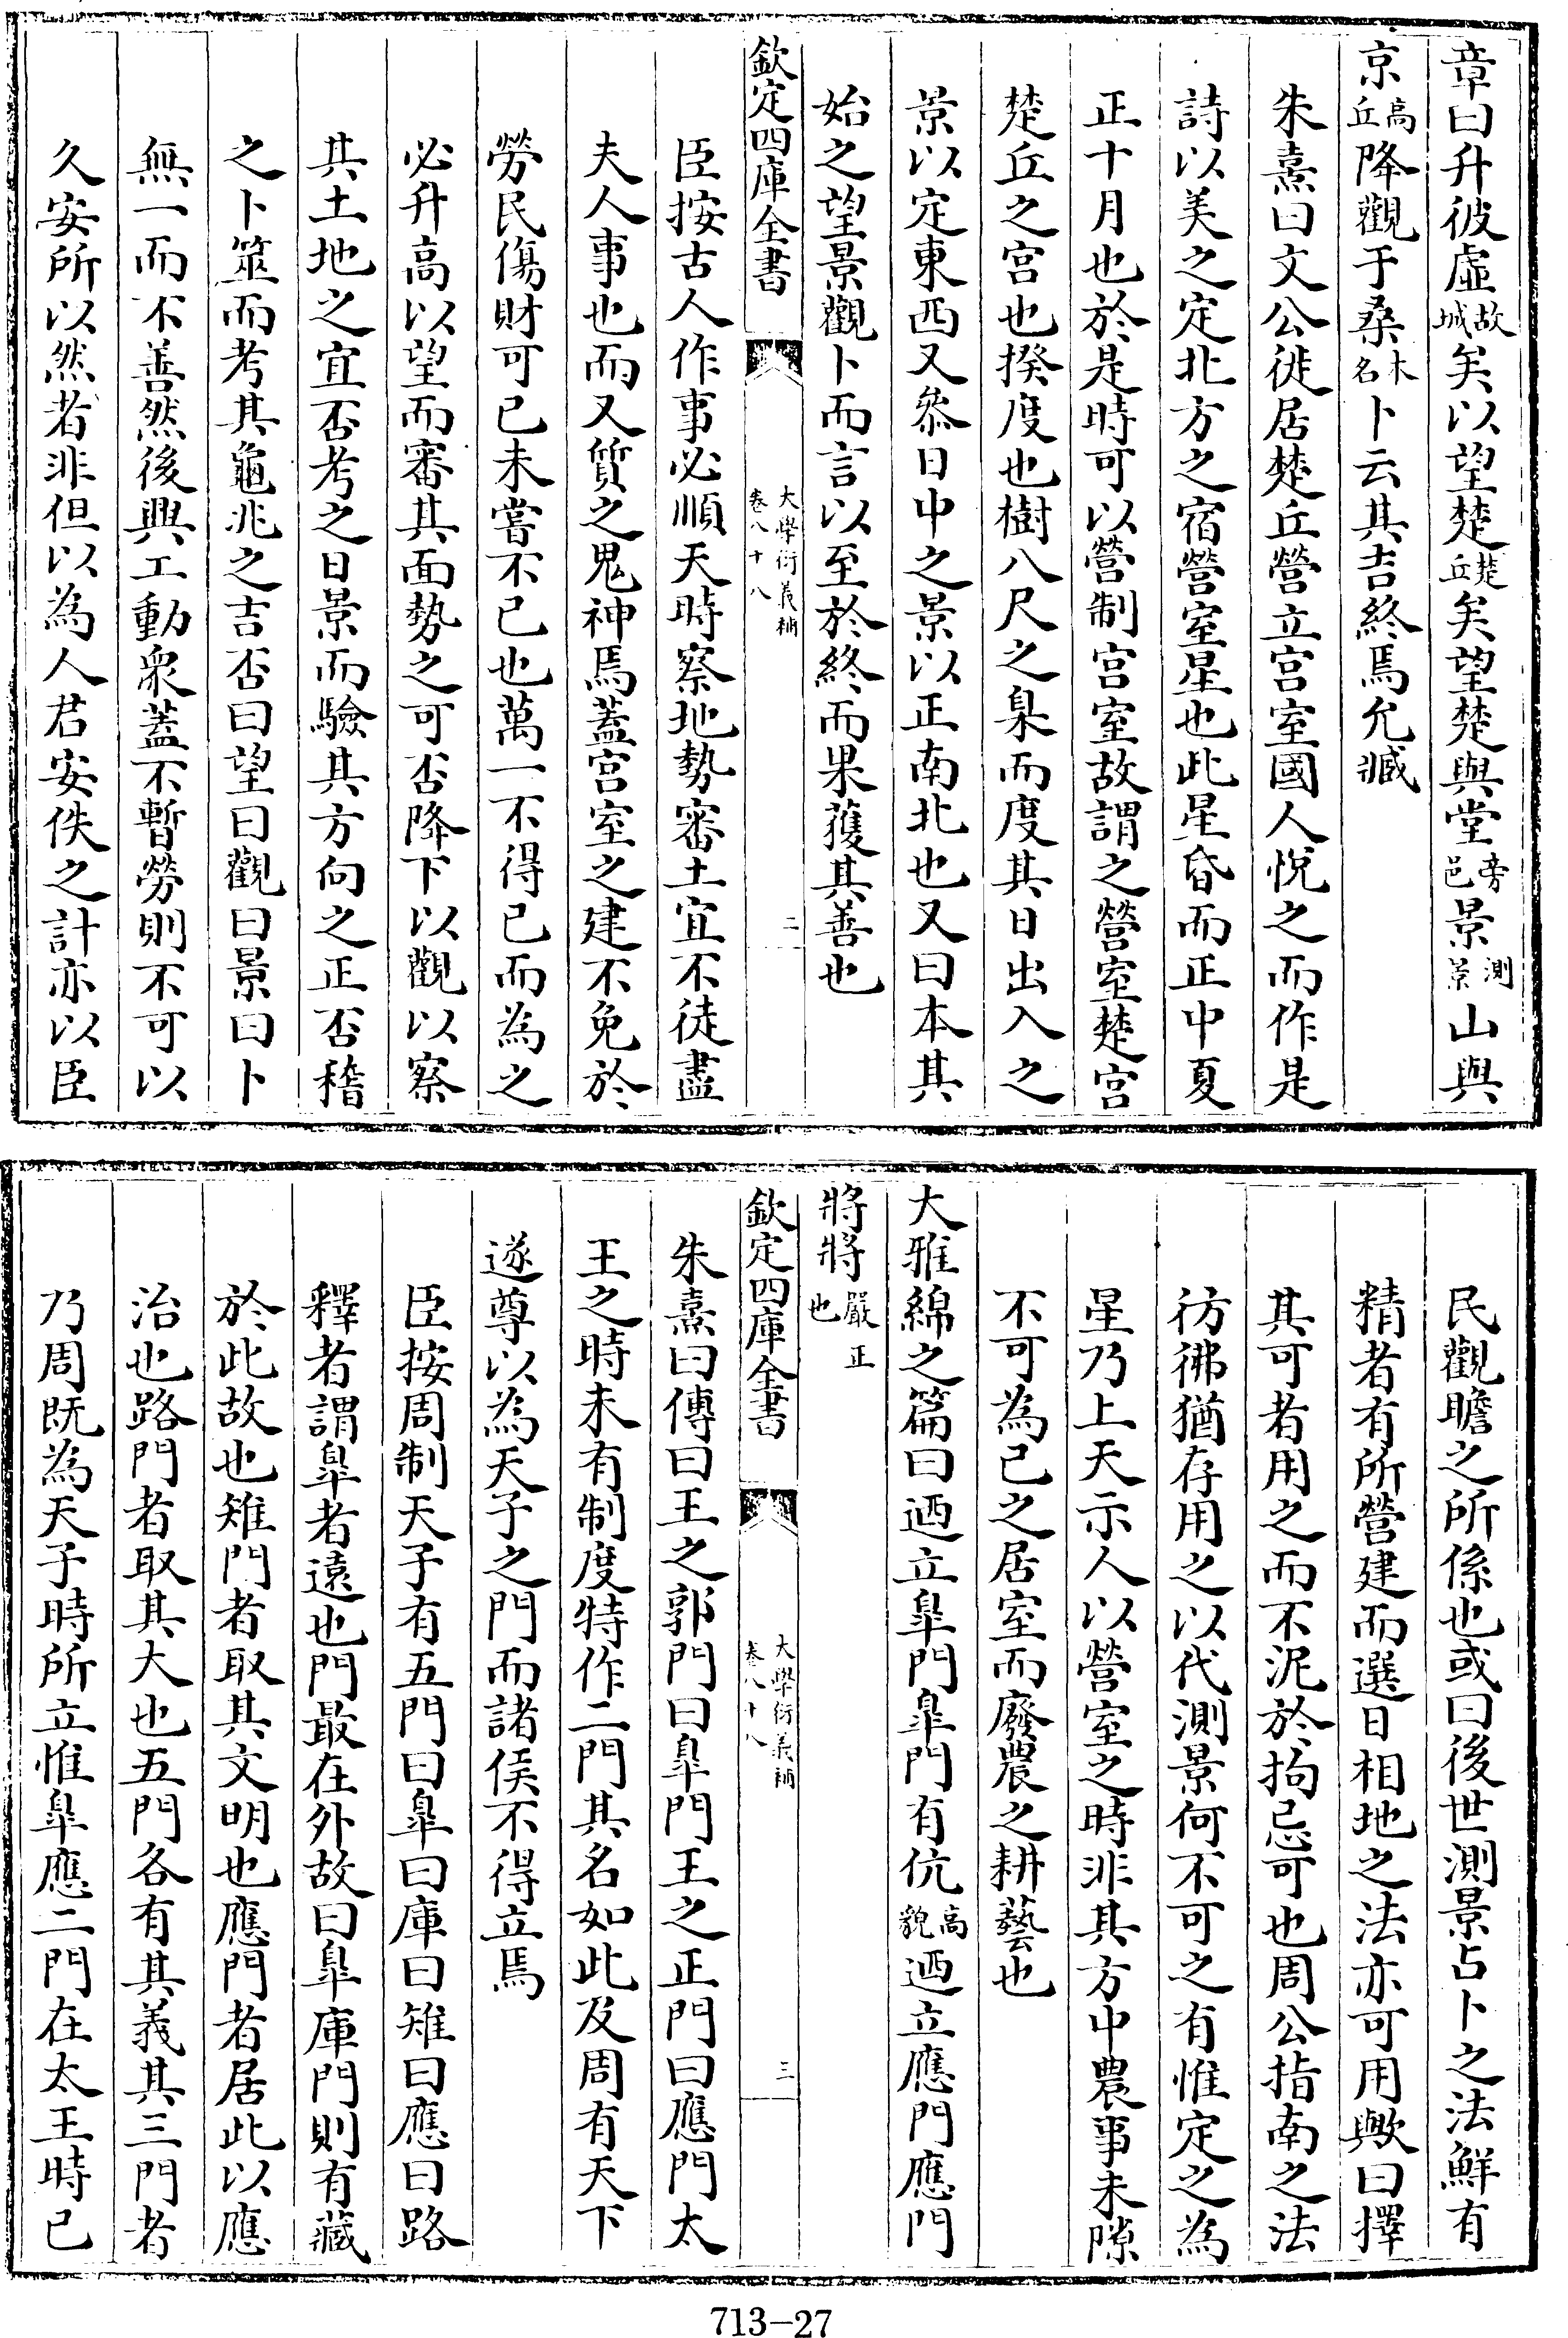 章曰升彼虛故城矣以望楚楚丘矣望楚與堂旁邑景測景山與
京高丘降觀于桑木名卜云其吉終焉允臧
朱熹曰文公徙居楚丘營立宫室國人悅之而作是
詩以美之定北方之宿營室星也此星昏而正中夏
正十月也於是時可以營制宫室故謂之營室楚宫
楚丘之宫也揆度也樹八尺之臬而度其日出入之
景以定東西又叅日中之景以正南北也又曰本其
始之望景觀卜而言以至於終而果獲其善也
欽定四庫全書 大學衍義補 卷八十八 二
臣按古人作事必順天時察地勢審土宜不徒盡
夫人事也而又質之鬼神焉蓋宫室之建不免於
勞民傷財可已未嘗不已也萬一不得已而為之
必升高以望而審其面勢之可否降下以觀以察
其土地之宜否考之日景而驗其方向之正否稽
之卜筮而考其龜兆之吉否曰望曰觀曰景曰卜
無一而不善然後興工動衆蓋不暫勞則不可以
久安所以然者非但以為人君安佚之計亦以臣
民觀瞻之所係也或曰後世測景占卜之法鮮有
精者有所營建而選日相地之法亦可用歟曰擇
其可者用之而不泥於拘忌可也周公指南之法
彷彿猶存用之以代測景何不可之有惟定之為
星乃上天示人以營室之時非其方中農事未隙
不可為己之居室而廢農之耕藝也
大雅綿之篇曰迺立臯門臯門有伉高貌迺立應門應門
將將嚴正也
欽定四庫全書 大學衍義補 卷八十八 三
朱熹曰傳曰王之郭門曰臯門王之正門曰應門太
王之時未有制度特作二門其名如此及周有天下
遂尊以為天子之門而諸侯不得立焉
臣按周制天子有五門曰臯曰庫曰雉曰應曰路
釋者謂臯者遠也門最在外故曰臯庫門則有藏
於此故也雉門者取其文明也應門者居此以應
治也路門者取其大也五門各有其義其三門者
乃周既為天子時所立惟臯應二門在太王時已
713-27